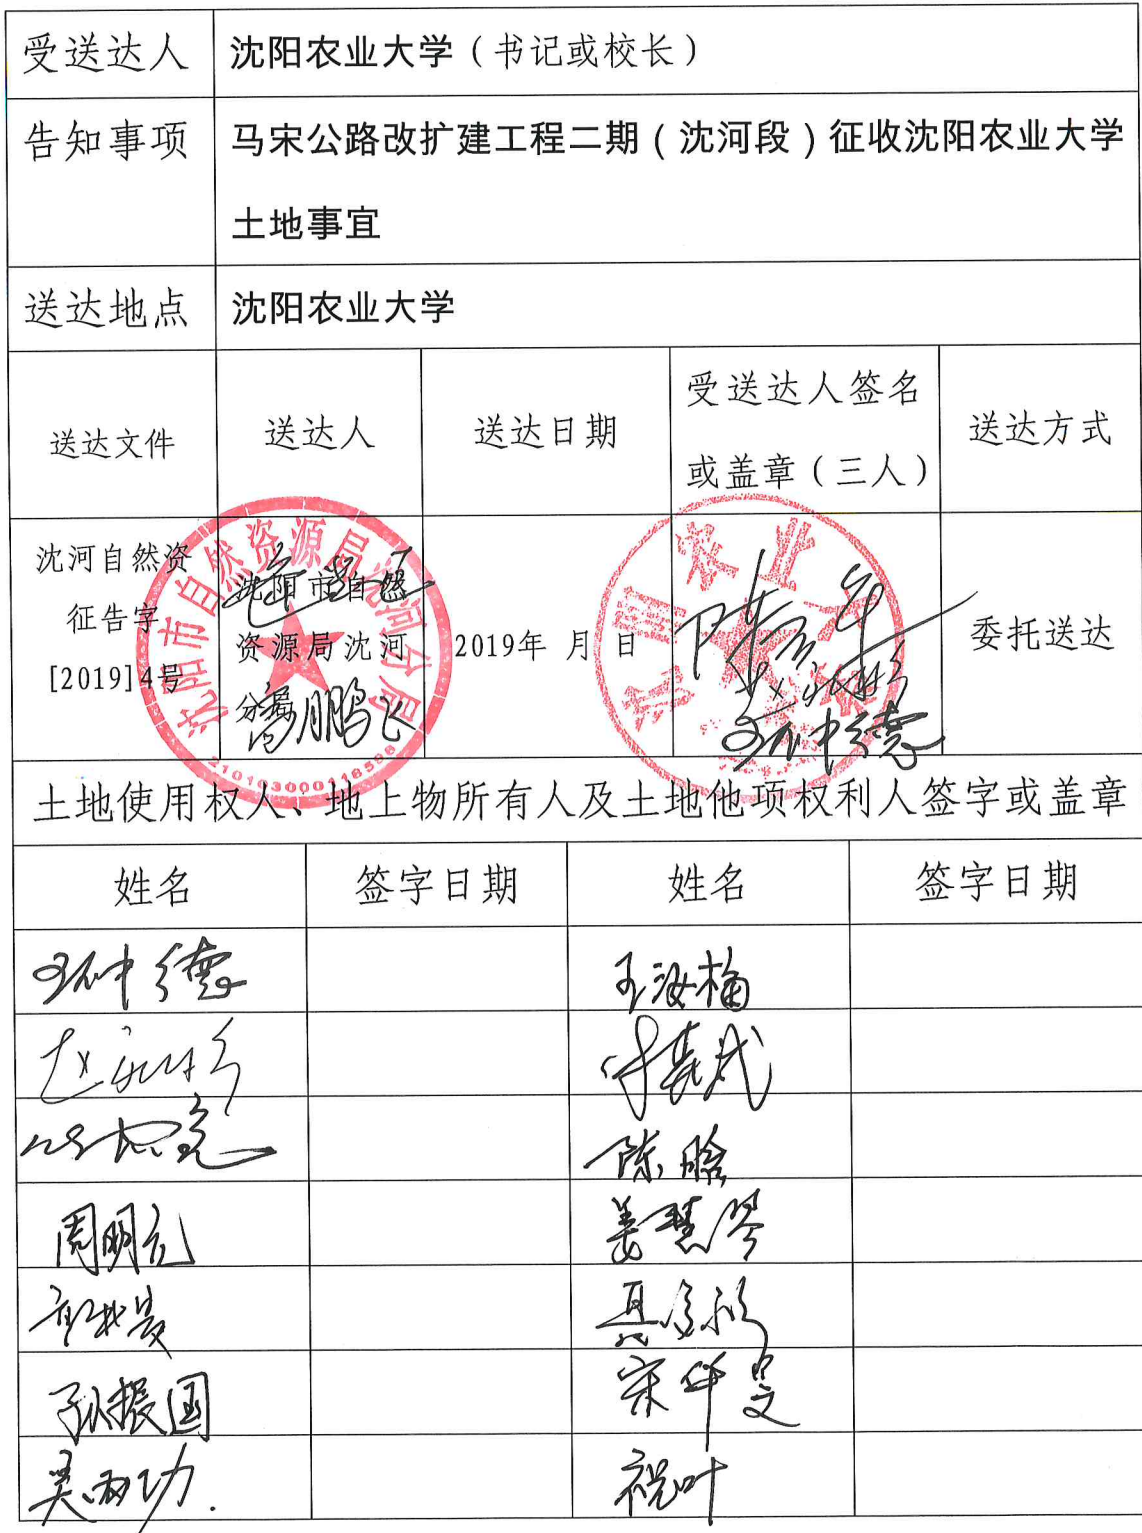 受送达人 沈阳农业大学（书记或校长）
告知事项 马宋公路改扩建工程二期（沈河段）征收沈阳农业大学
土地事宜
送达地点 沈阳农业大学
送达文件 送达人 送达日期 受送达人签名
或盖章（三人） 送达方式
沈河自然资
征告字
[2019]4号
沈阳市自然
资源局沈河
分局
鹏飞
沈阳市自然资源局沈河分局
2019年 月 日
沈阳农业大学
委托送达
土地使用权人、地上物所有人及土地他项权利人签字或盖章
姓名 签字日期 姓名 签字日期
王汝梅
陈晗
周明亮 姜慧琴
孙振国
祝叶